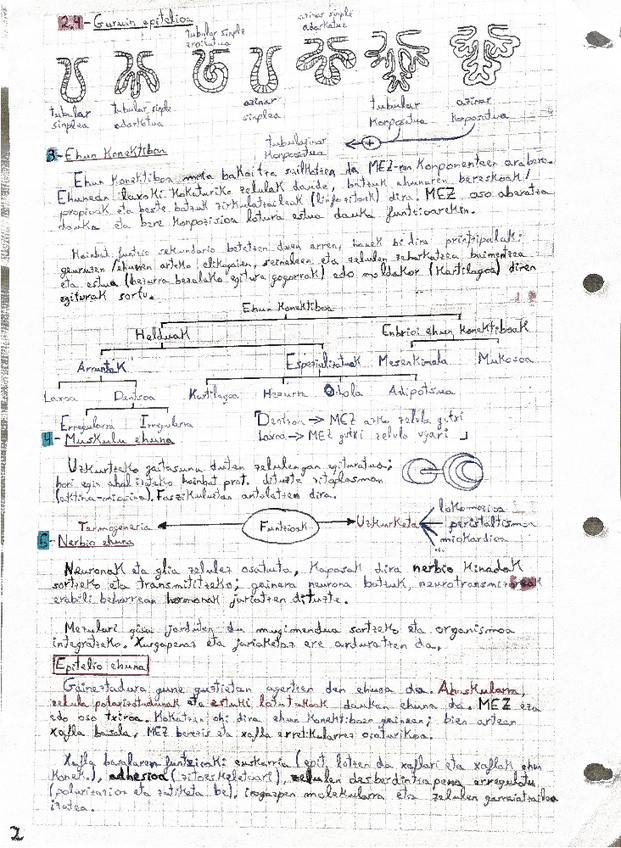 2.4- Guruin epitelioa
tubular simple
azinar simple
adarkatua
tubular
sinplea
tubular simple
adarkatua
azinar
sinplea
tubular
Konposatua
azinar
Konposatua
tubuloazinar
Konposatua
3- Ehun Konektiboa
Ehun Konektiboa mota bakoitza sailkatzen da MEZ-ren Konponenteen arabera.
Ehunean laxoki Kokaturiko zelulak daude, batzuk ehunaren berezkoak/
propioak eta beste batzuk zirkulatzaileak (linfozitoak) dira. MEZ oso aberatsa
dauka eta bere konposizioa lotura estua dauka funtzioarekin.
Hainbat funtzio sekundario betetzen duen arren, hauek bi dira printzipalak:
geurutzen/ehunen arteko elikagaien, seinaleen eta zelulen zeharkatzea baimentzea
eta estua (hezurra bezalako egitura gogorrak) edo moldakor (Kartilagoa) diren
egiturak sortu.
Ehun Konektiboa
Helduak
Enbrioi ehun Konektiboak
Arruntak
Espezializatuak
Mesenkimala
Mukosoa
Laxoa
Dentsoa
Kartilagoa
Hezurra
Odola
Adiposoa
Erregularra
Irregularra
Dentsoa → MEZ asko zelula gutxi
Laxoa → MEZ gutxi zelula ugari
4- Muskulu ehuna
Uzkurtzeko gaitasuna duten zelulengan egituratua;
hori egin ahal izateko hainbat prot. dituzte zitoplasman
(aktina-miosina). Faszikuluetan antolatzen dira.
Termogenesia
Funtzioak
Uzkurketa
lokomozioa
peristaltismoa
miokardioa
...
5- Nerbio ehuna
Neuronak eta glia zelulez osatuta. Kapazak dira nerbio Kinadak
sortzeko eta transmititzeko; gainera neurona batzuk, neurotransmisoreak
erabili beharrean hormonak jariatzen dituzte.
Mezulari gisa jarduten du mugimendua sortzeko eta organismoa
integratzeko. Xurgapenaz eta jariaketaz ere arduratzen da.
Epitelio ehuna
Gainestadura gune guztietan agertzen den ehuna da. Abaskularra,
zelula polarizatudunak eta estuki lotutakoak dauken ehuna da. MEZ eza
edo oso txiroa. Kokatzen ohi dira ehun Konektiboaren gainean; bien artean
xafla basala, MEZ berezis eta xafla erretikularrez osaturikoa.
Xafla basalaren funtzioak: euskarria (epit. lotzen da xaflari eta xaflak ehun
Konek.), adhesioa (zitoeskeletoari), zelulen desberdintzapena erregulatu
(polarizazioa eta zatiketa be), iragazpen molekularra eta zelulen garraiatzailea
izatea.
2